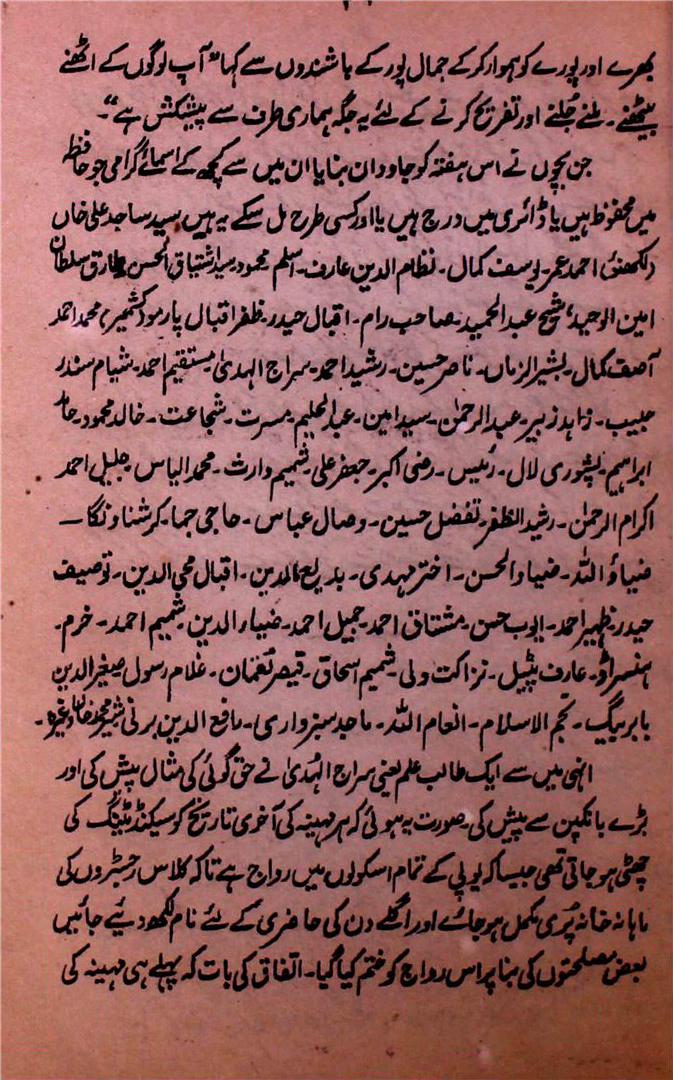 بھرے اور پورے کو ہموار کر کے جمال پور کے باشندوں سے کہا "آپ لوگوں کے اٹھنے
بیٹھنے۔ ملنے جُلنے اور تفریح کرنے کے لئے یہ جگہ ہماری طرف سے پیشکش ہے"۔
جن بچوں نے اس ہفتہ کو جاودان بنایا ان میں سے کچھ کے اسمائے گرامی جو حافظہ
میں محفوظ ہیں یا ڈائری میں درج ہیں یا اور کسی طرح مل سکے یہ ہیں سید ساجد علی خاں
(لکھنؤ) احمد عمر۔ یوسف کمال۔ نظام الدین عارف۔ اسلم محمود۔ سید اشتیاق الحسن۔ طارق سلطان
امین الوحید، شیخ عبدالحمید۔ صاحب رام۔ اقبال حیدر۔ ظفر اقبال پارمو (کشمیر) محمد احمد
آصف کمال۔ بشیر الزماں۔ ناصر حسین۔ رشید احمد۔ سراج الہدیٰ۔ مستقیم احمد۔ شیام سندر
حبیب۔ زاہد زبیر۔ عبدالرحمٰن۔ سید امین۔ عبدالحلیم۔ مسرت۔ شجاعت۔ خالد محمود۔ حامد
ابراہیم۔ پشوری لال۔ رئیس۔ رضی اکبر۔ جعفر علی۔ شمیم وارث۔ محمد الیاس۔ جلیل احمد
اکرام الرحمٰن۔ رشید الظفر۔ تفضل حسین۔ وصال عباس۔ حاجی جما۔ کرشنا ونگا۔
ضیاؤ اللہ۔ ضیاء الحسن۔ اختر مہدی۔ بدیع الدین۔ اقبال محی الدین۔ توصیف
حیدر۔ ظہیر احمد۔ ایوب حسن۔ مشتاق احمد۔ جمیل احمد۔ ضیاء الدین۔ شمیم احمد۔ خرم۔
ہنسراؤ۔ عارف پٹیل۔ نزاکت ولی۔ شمیم اسحاق۔ قیصر نعمان۔ غلام رسول۔ صغیر الدین
بابر بیگ۔ نجم الاسلام۔ انعام اللہ۔ ماجد سبزواری۔ رافع الدین برنی۔ شیر محمد خاں وغیرہ۔
انہی میں سے ایک طالب علم یعنی سراج الہُدیٰ نے حق گوئی کی مثال پیش کی اور
بڑے بانکپن سے پیش کی۔ صورت یہ ہوئی کہ ہر مہینہ کی آخری تاریخ کو سیکنڈ میٹنگ کی
چھٹی ہو جاتی تھی جیسا کہ یوپی کے تمام اسکولوں میں رواج ہے تاکہ کلاس رجسٹروں کی
ماہانہ خانہ پُری مکمل ہو جائے اور اگلے دن کی حاضری کے لئے نام لکھ دیئے جائیں
بعض مصلحتوں کی بنا پر اس رواج کو ختم کیا گیا۔ اتفاق کی بات کہ پہلے ہی مہینہ کی